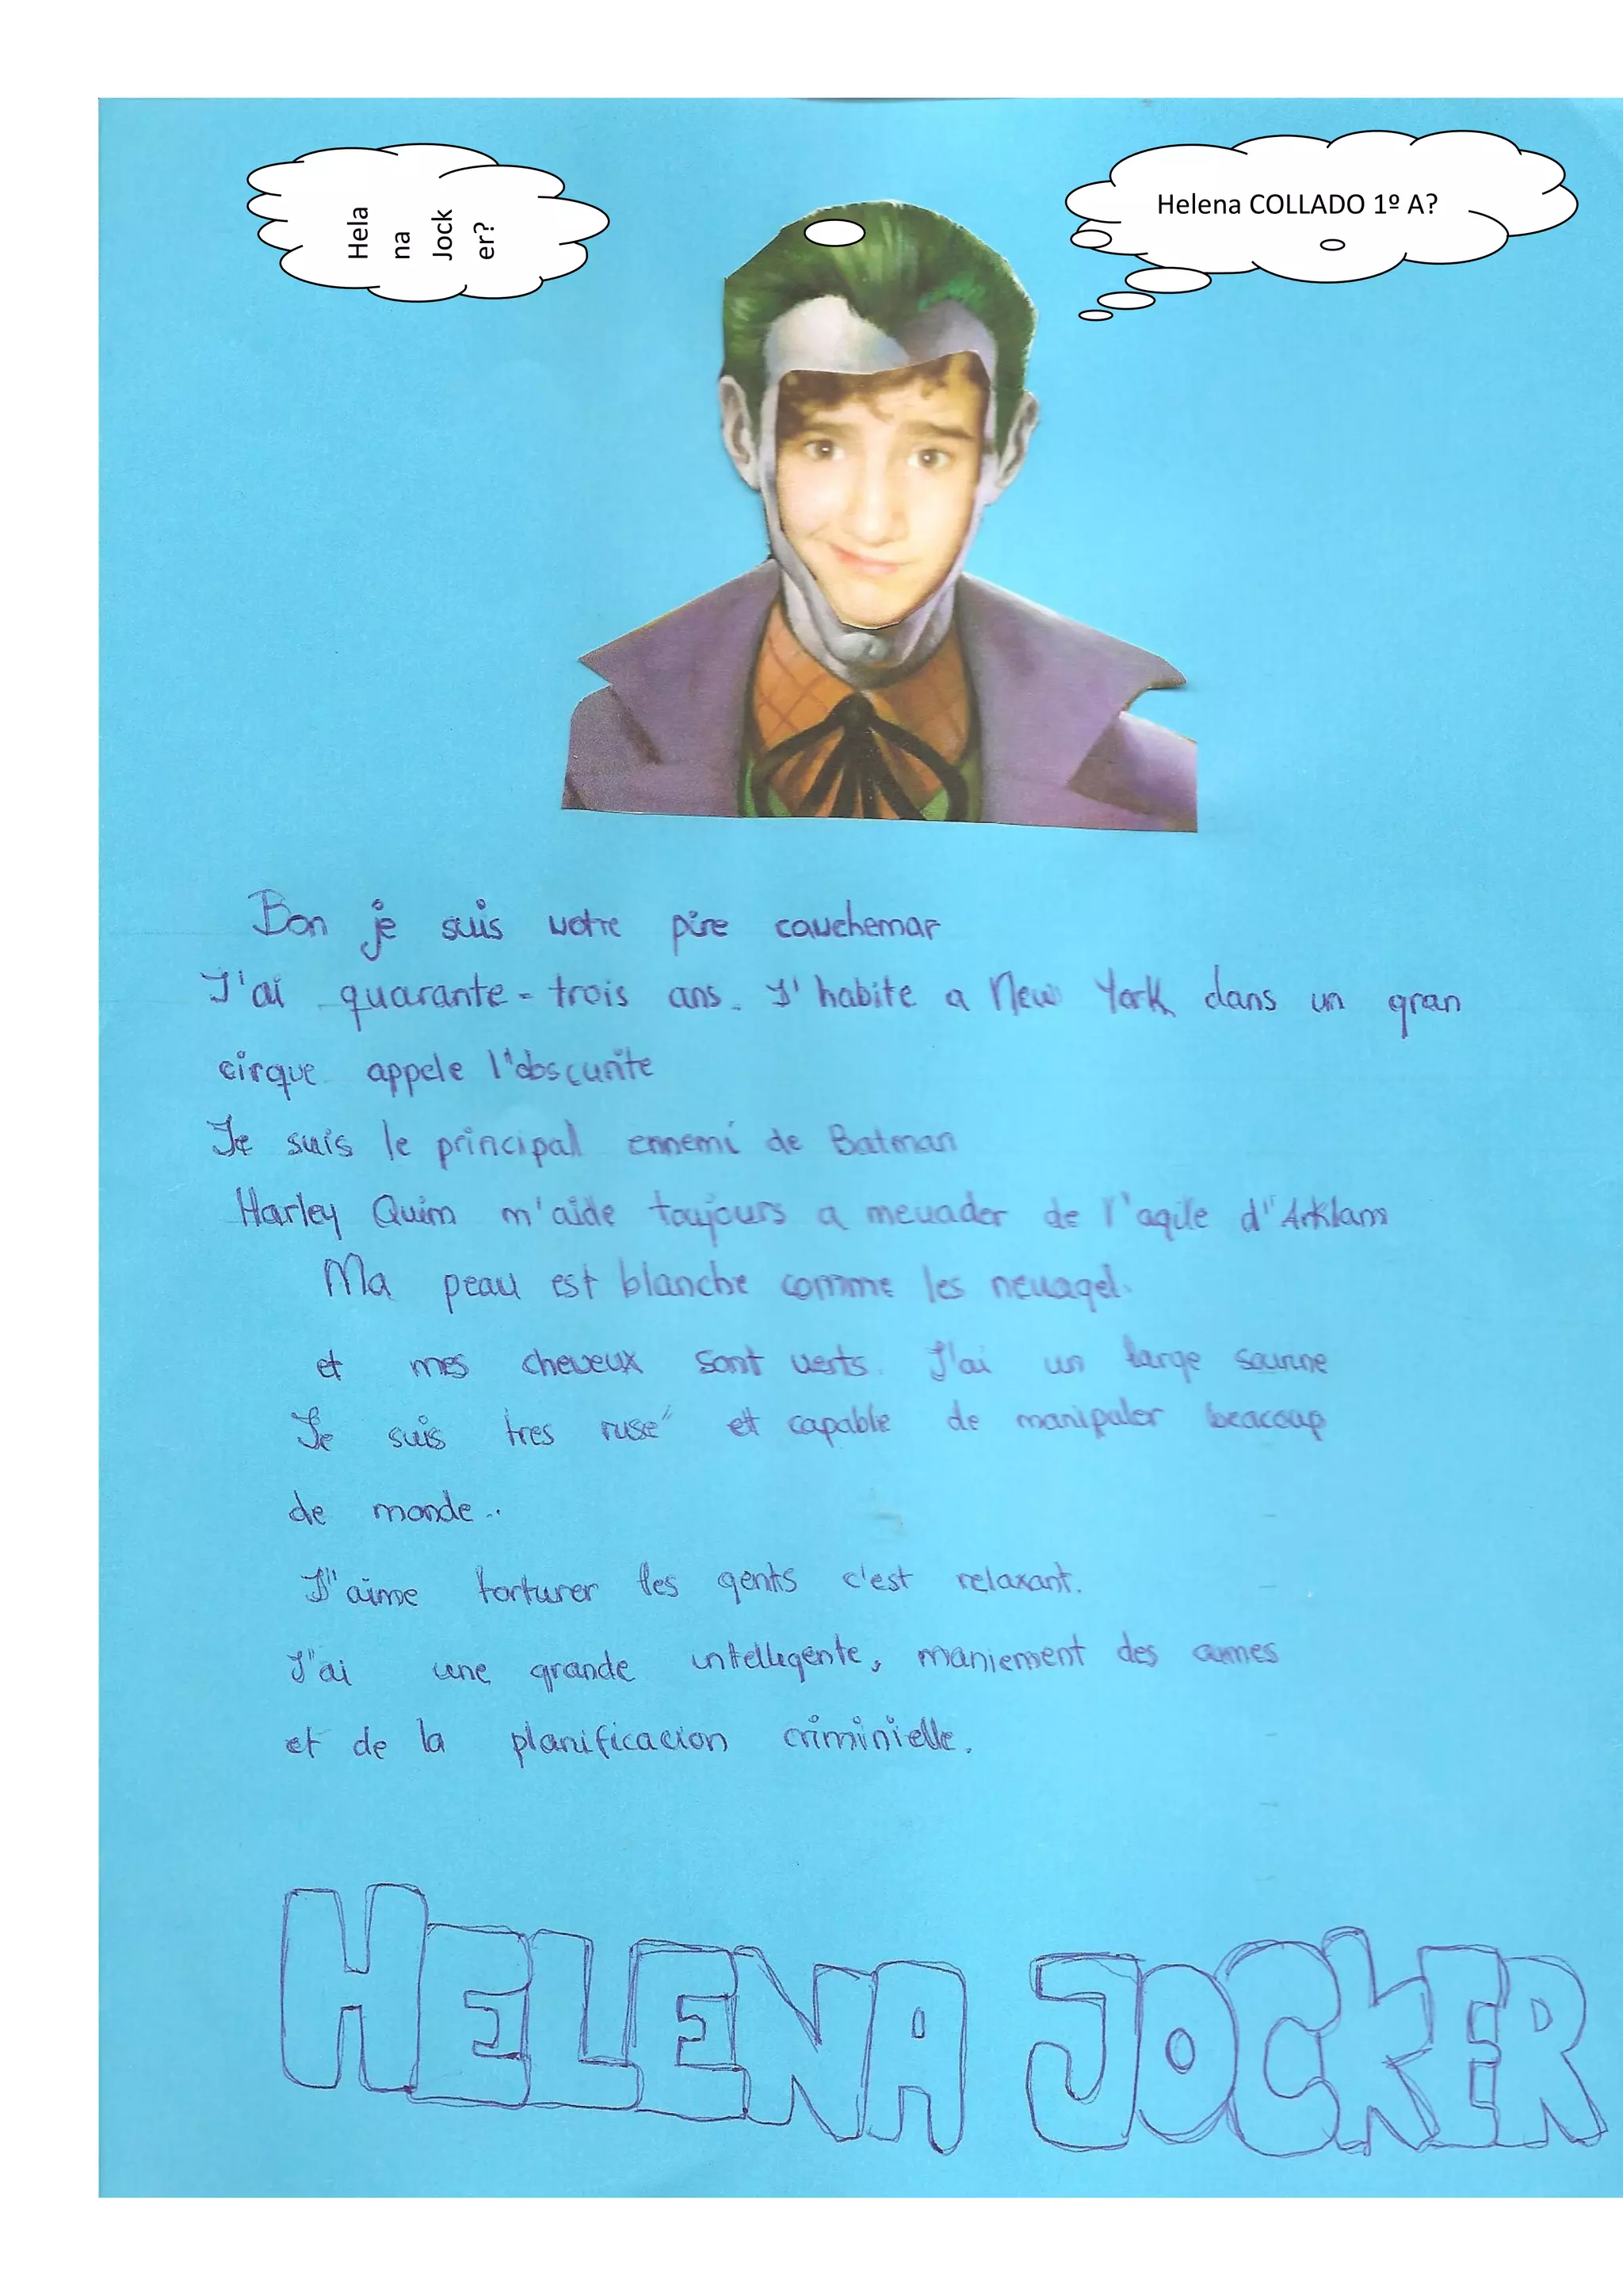 Hela
na
Jock
er?
Helena COLLADO 1º A?
Bon je suis votre pire cauchemar
J'ai quarante-trois ans. J'habite a New York dans un gran
cirque appele l'obscurite
Je suis le principal ennemi de Batman
Harley Quim m'aide toujours a mevader de l'agile d'Arklam
Ma peau est blanche comme les neuagel.
et mes cheveux sont verts. J'ai un large sourine
Je suis tres rusé et capable de manipuler beacoup
de monde..
J'aime torturer les gents c'est relaxant.
J'ai une grande intellegente, maniement des armes
et de la planificacion criminielle.
HELENA JOCKER